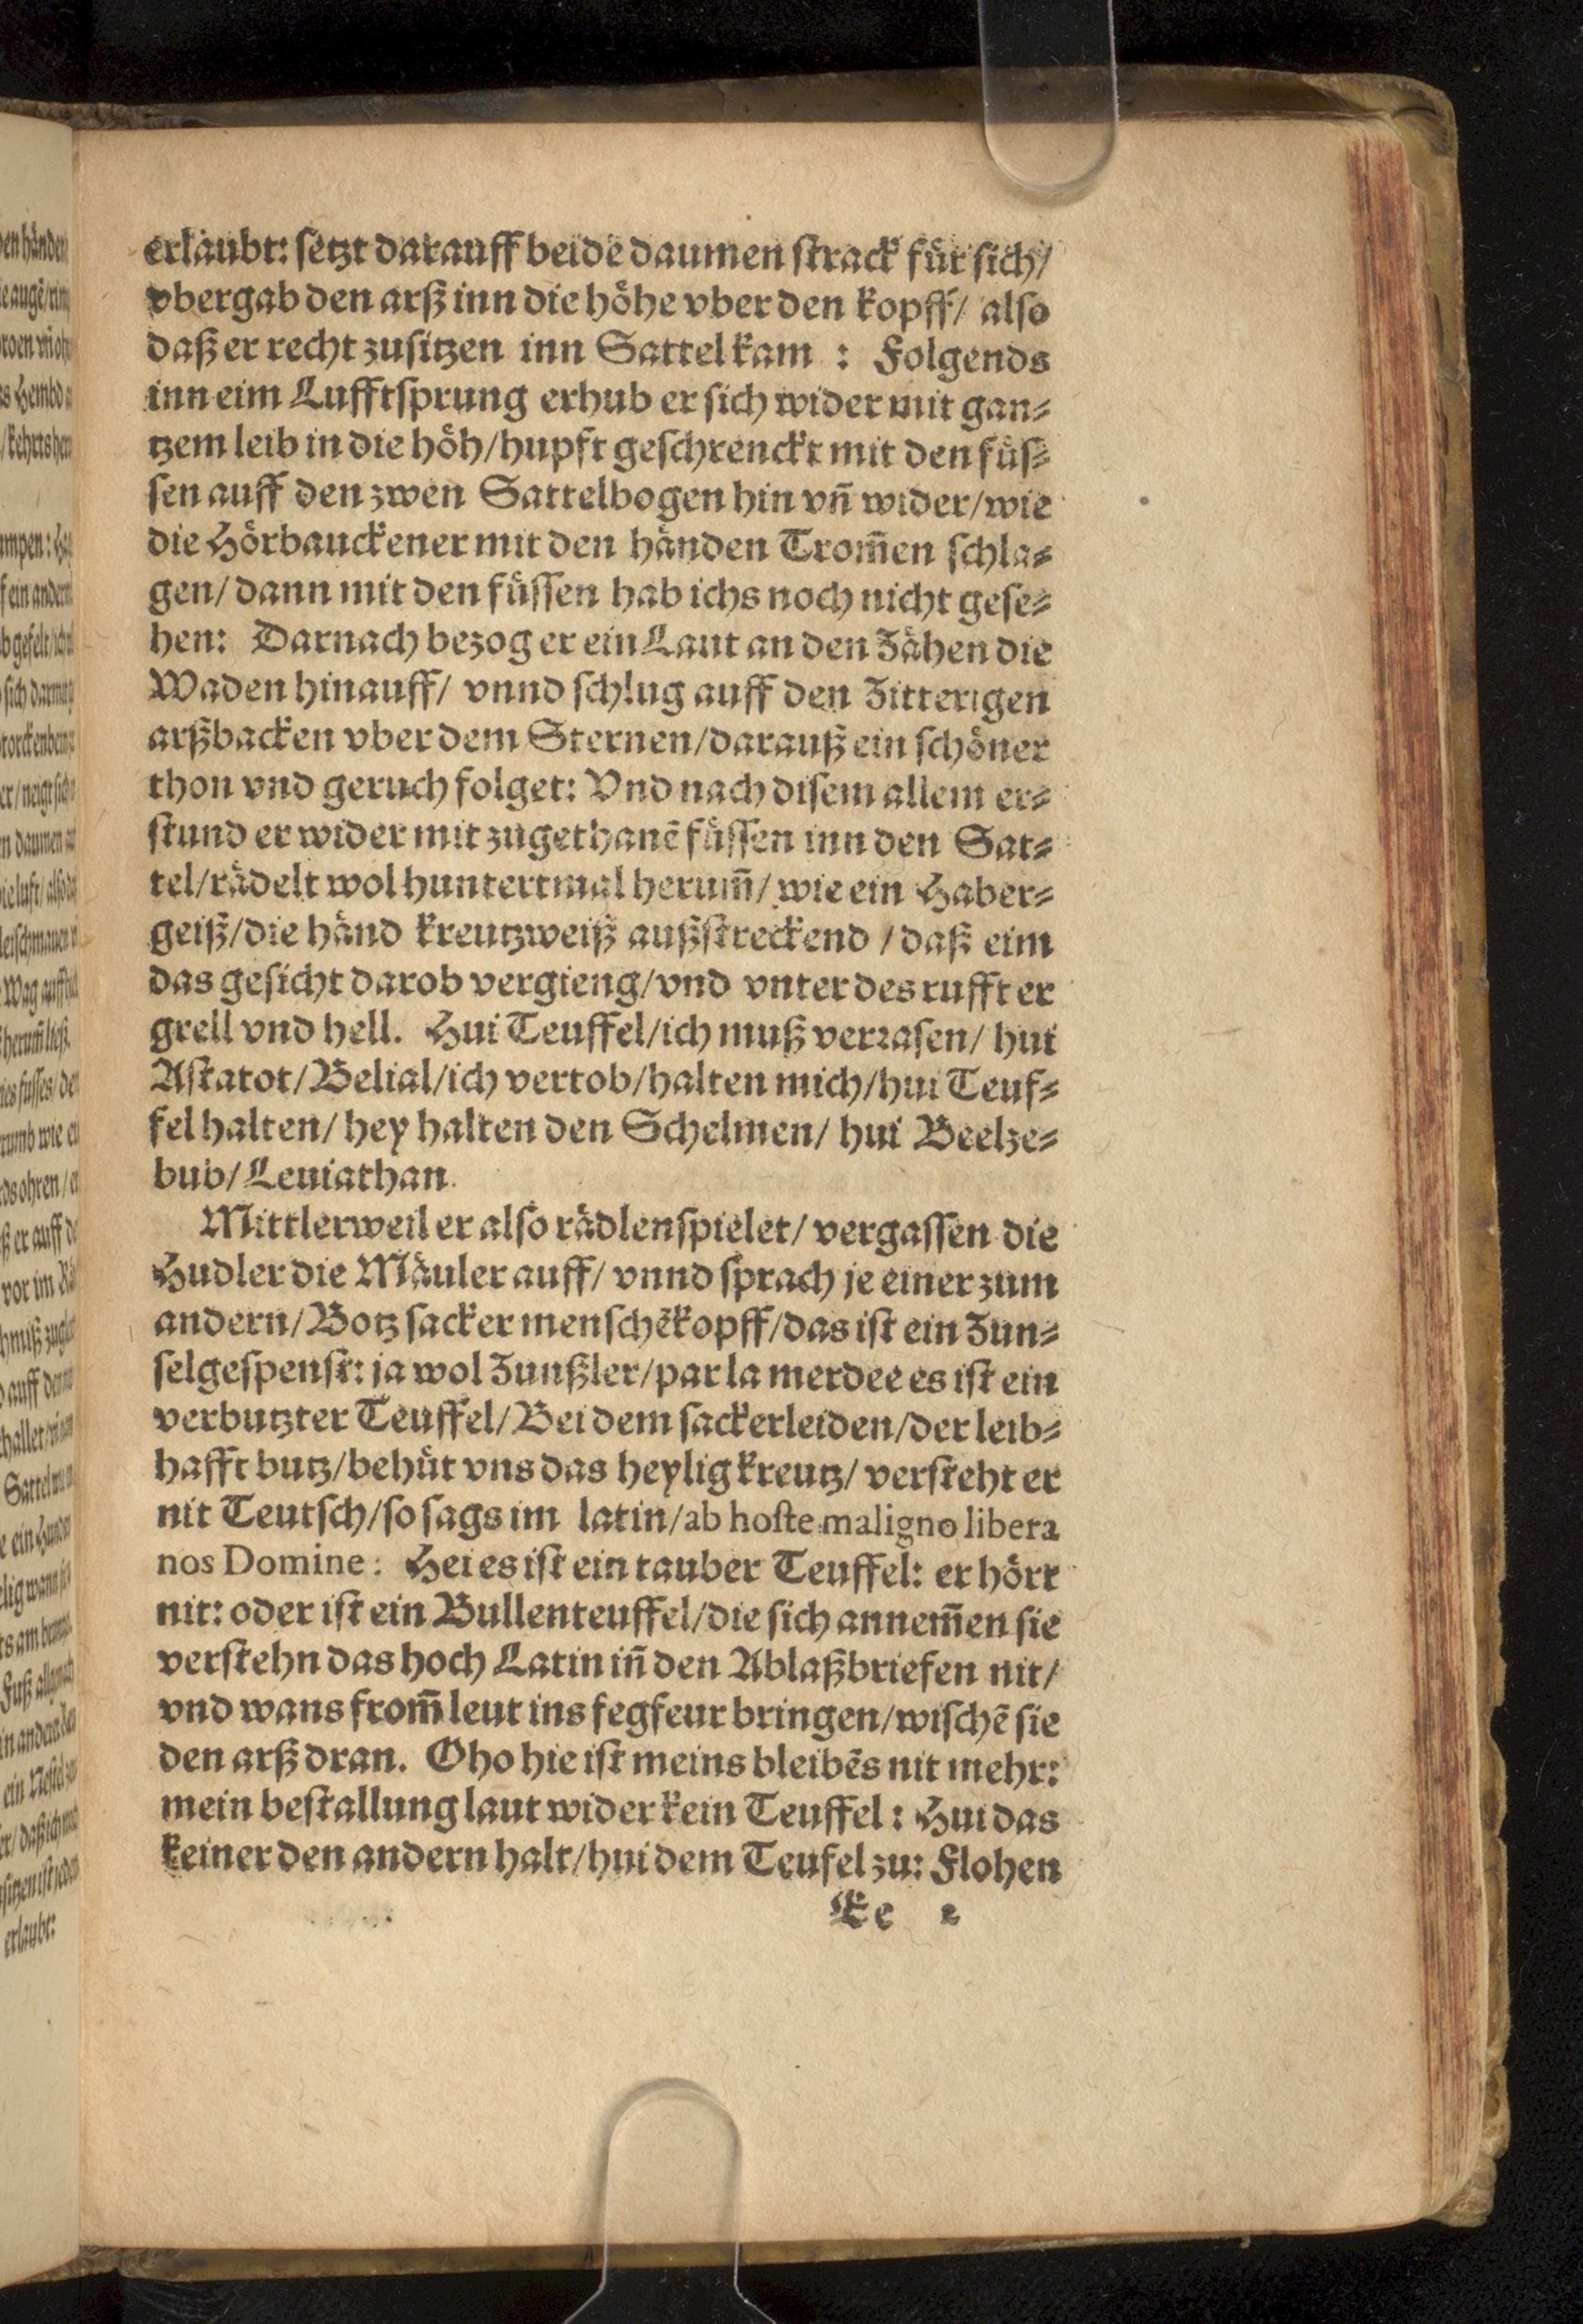 erlaubt: ſetzt darauff beide daumen ſtrack fuͤr ſich/
vbergab den arß inn die hoͤhe vber den kopff/ alſo
daß er recht zuſitzen inn Sattel kam : Folgends
inn eim Lufftſprung erhub er ſich wider mit gan⸗
tzem leib in die hoͤh/hupft geſchrenckt mit den fuͤſ⸗
ſen auff den zwen Sattelbogen hin vn̄ wider/wie
die Hoͤrbauckener mit den haͤnden Trom̄en ſchla⸗
gen/ dann mit den fuͤſſen hab ichs noch nicht geſe⸗
hen: Darnach bezog er ein Laut an den Zaͤhen die
Waden hinauff/ vnnd ſchlug auff den Zitterigen
arßbacken vber dem Sternen/darauß ein ſchoͤner
thon vnd geruch folget: Vnd nach diſem allem er⸗
ſtund er wider mit zugethanē fuͤſſen inn den Sat⸗
tel/raͤdelt wol huntertmal herum̄/ wie ein Haber⸗
geiß/die haͤnd kreutzweiß außſtreckend /daß eim
das geſicht darob vergieng/vnd vnter des rufft er
grell vnd hell. Hui Teuffel/ich muß verꝛaſen/ hui
Aſtarot/Belial/ich vertob/halten mich/hui Teuf⸗
fel halten/ hey halten den Schelmen/ hui Beelze⸗
bub/ Leuiathan.
Mittlerweil er alſo raͤdlenſpielet/ vergaſſen die
Hudler die Maͤuler auff/ vnnd ſprach je einer zum
andern/Botz ſacker menſchēkopff/das iſt ein Zun⸗
ſelgeſpenſt: ja wol Zunßler/par la merdee es iſt ein
verbutzter Teuffel/Bei dem ſackerleiden/der leib⸗
hafft butz/behuͤt vns das heylig kreutz/ verſteht er
nit Teutſch/ſo ſags im latin/ab hoſte maligno libera
nos Domine : Hei es iſt ein tauber Teuffel: er hoͤrt
nit: oder iſt ein Bullenteuffel/die ſich annem̄en ſie
verſtehn das hoch Latin in̄ den Ablaßbriefen nit/
vnd wans from̄ leut ins fegfeur bringen/wiſchē ſie
den arß dran. Oho hie iſt meins bleibēs nit mehr:
mein beſtallung laut wider kein Teuffel : Hui das
keiner den andern halt/hui dem Teufel zu: Flohen
Ee 2